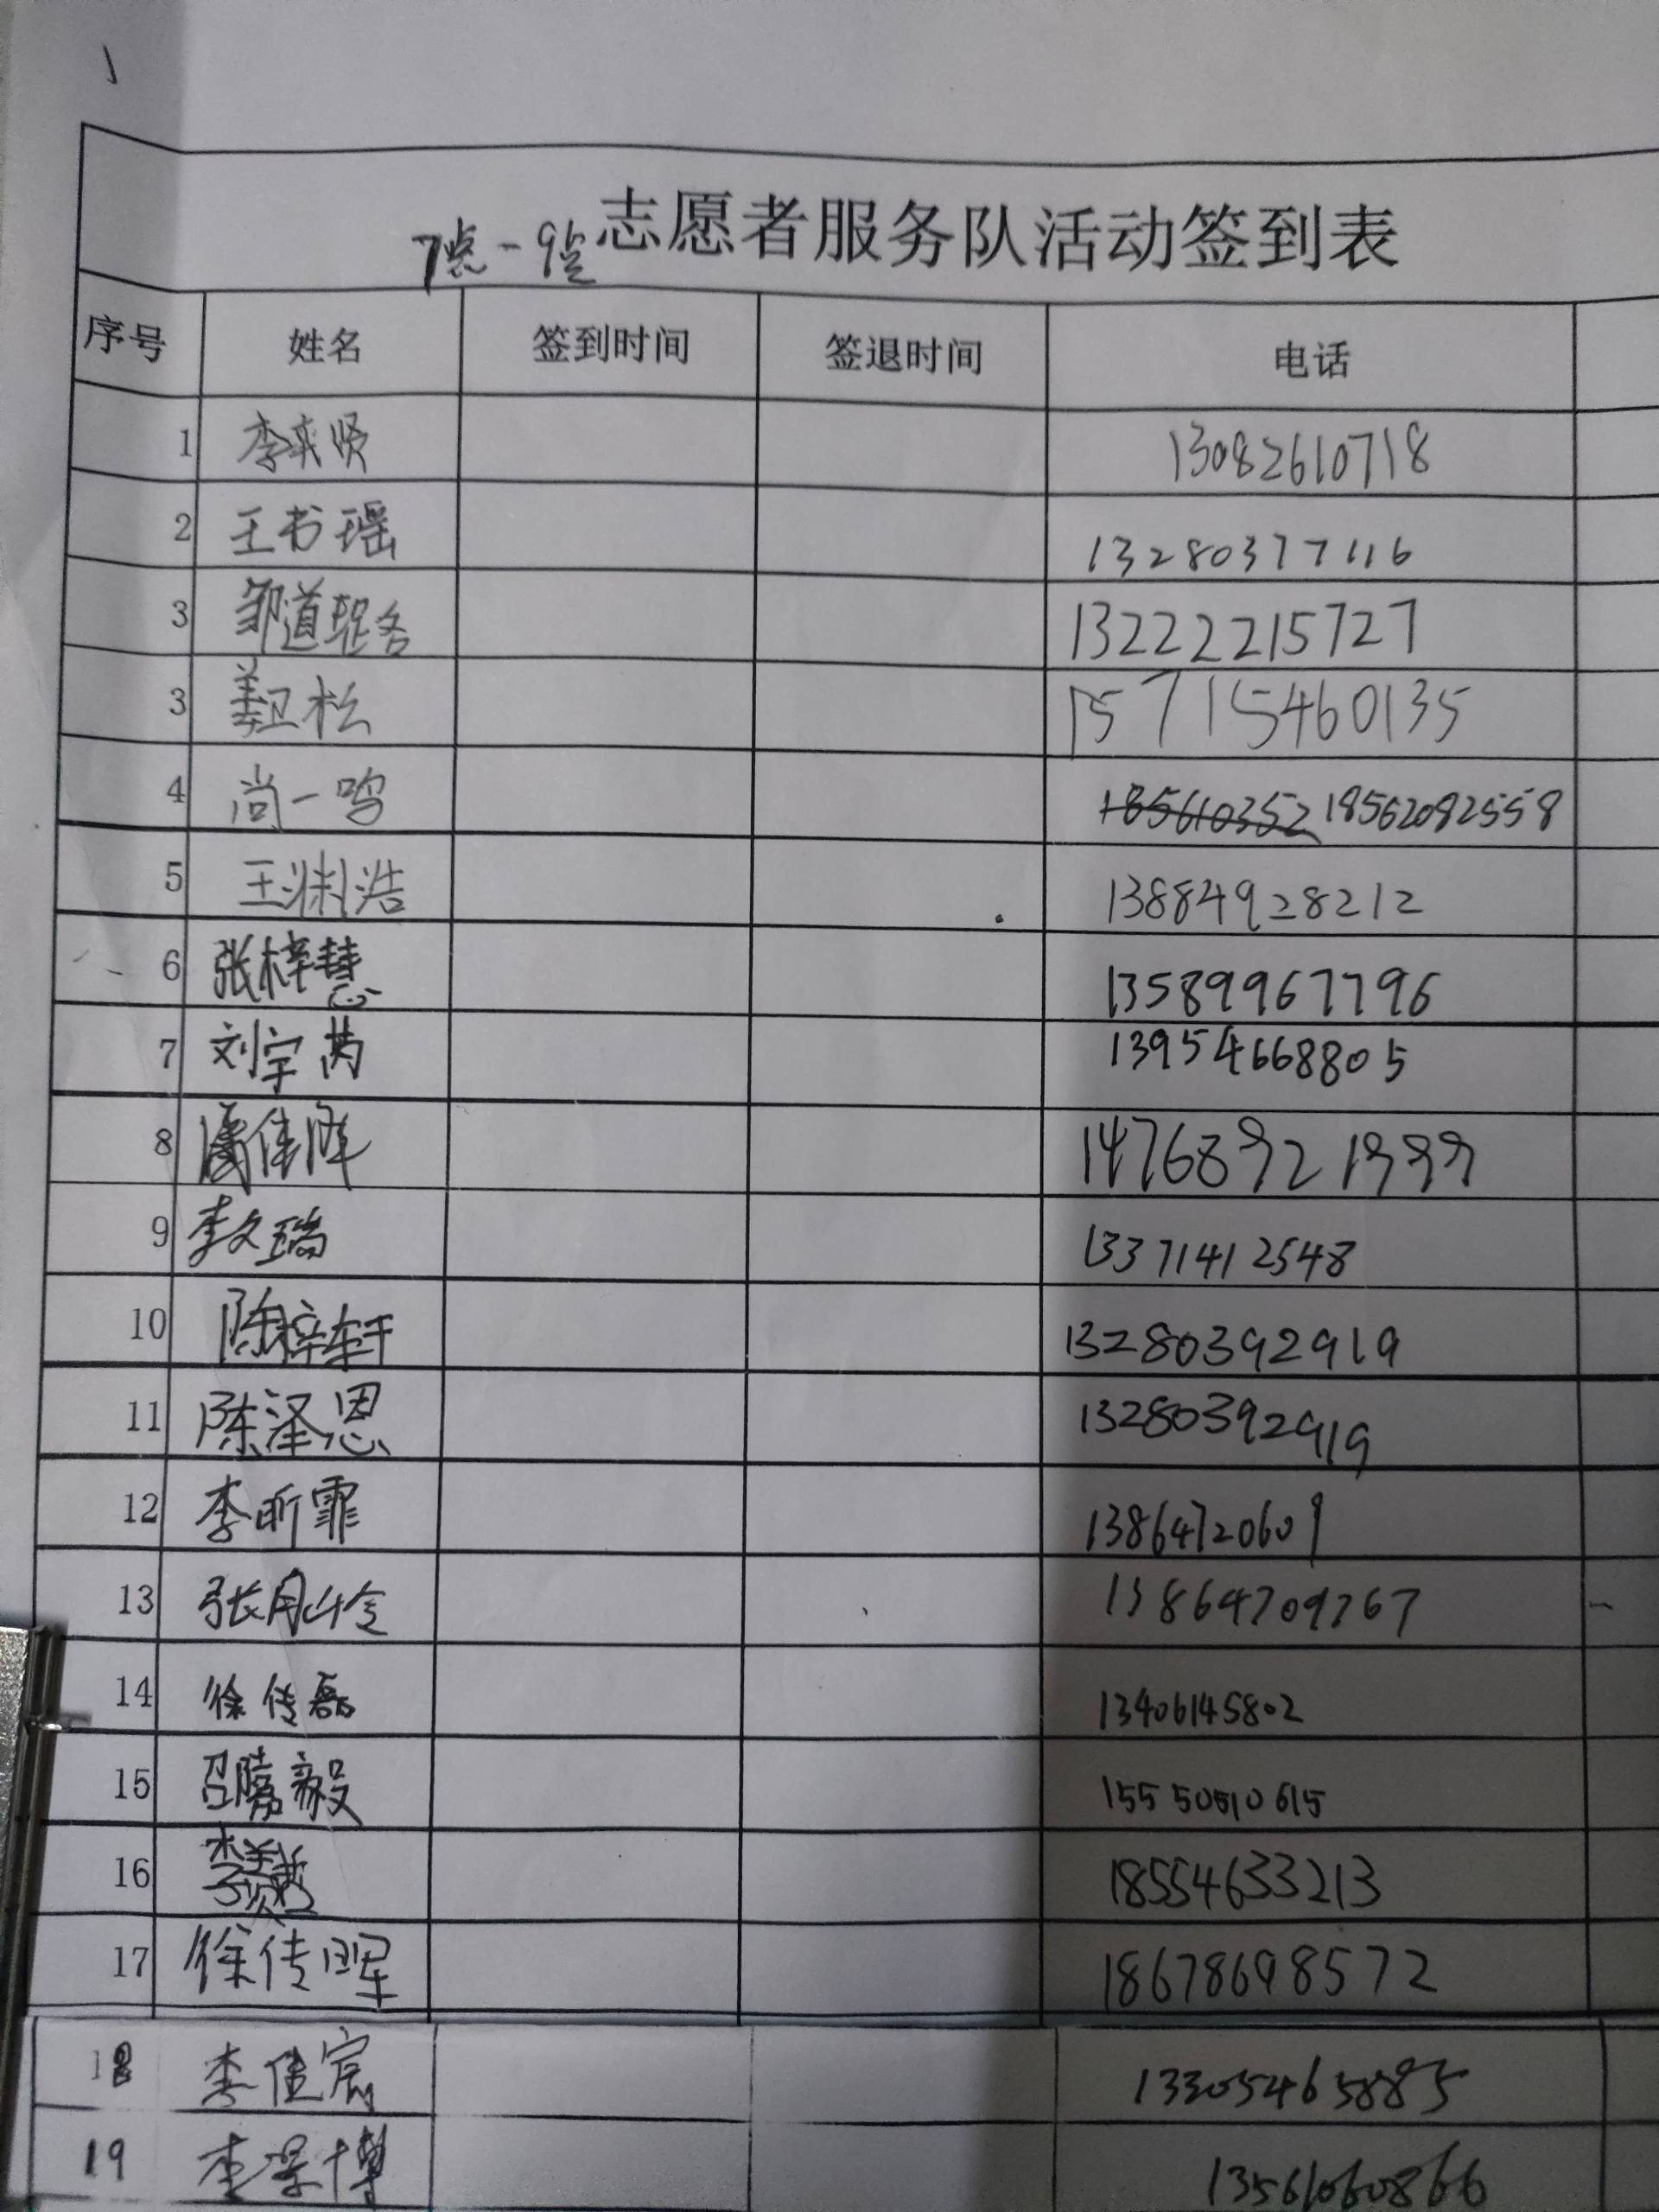 7点-9点 志愿者服务队活动签到表
序号 姓名 签到时间 签退时间 电话
1 李奕贤 13082610718
2 王书瑶 13280377116
3 邹道 13222215727
3 姜卫松 15715460135
4 尚一鸣 18562082558
5 王渊浩 13884928212
6 张梓慧 13589967796
7 刘宇芮 13954668805
8 14768921999
9 李文瑞 13371412548
10 陈梓轩 13280392919
11 陈泽恩 13280392919
12 李昕霏 13864720609
13 张月岭 13864709767
14 徐传磊 13406145802
15 毅 15550510615
16 李 18554633213
17 徐传晖 18678698572
18 李佳宸 13305465885
19 李景博 13561060866